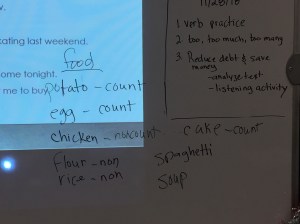 cating last weekend.
ome tonight.
me to buy
food
potato - count
egg - count
chicken - noncount
flour - non
rice - non
cake - count
spaghetti
soup
11/28/18
1 verb practice
2. too, too much, too many
3. Reduce debt & save
money
- analyze text
- listening activity